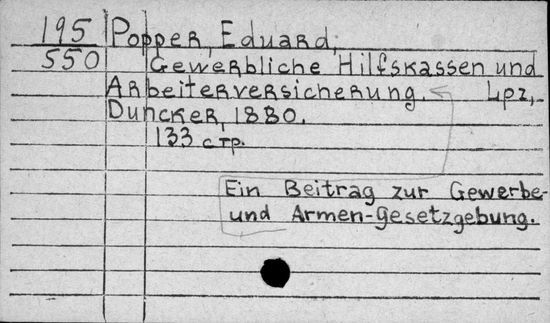 195 Popper, Eduard,
550 Gewerbliche Hilfskassen und
Arbeiterversicherung. Lpz,
Duncker, 1880.
133 стр.
Ein Beitrag zur Gewerbe-
und Armen-Gesetzgebung.